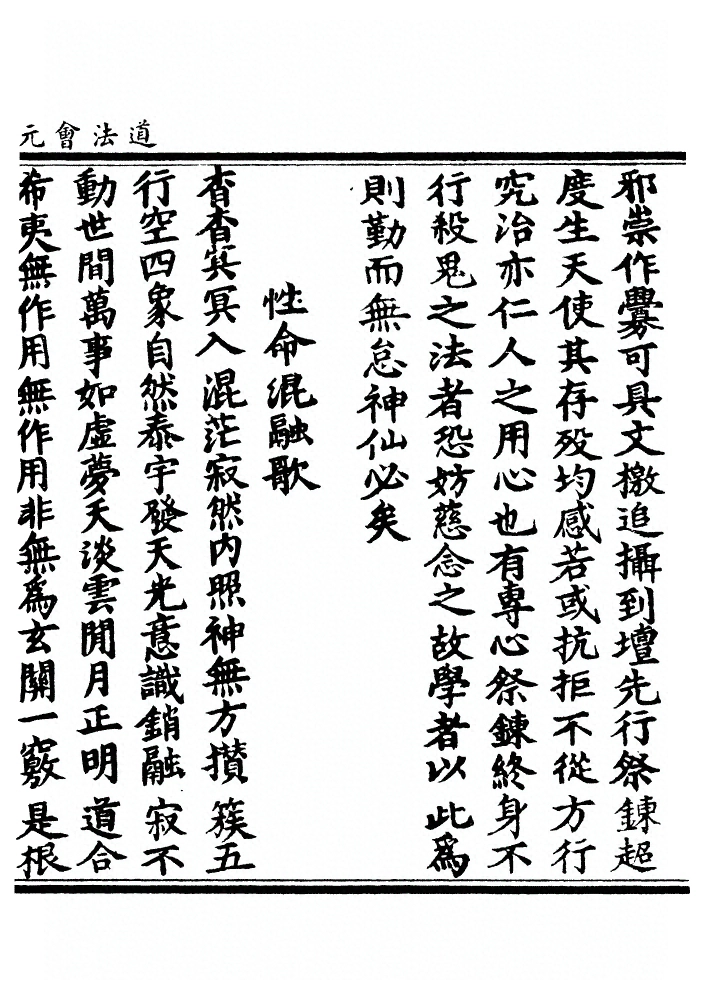 道法會元
邪祟作釁可具文檄追攝到壇先行祭鍊超
度生天使其存殁均感若或抗拒不從方行
究治亦仁人之用心也有專心祭鍊終身不
行殺鬼之法者恐妨慈念之故學者以此為
則勤而無怠神仙必矣
性命混融歌
杳杳冥冥入混茫寂然内照神無方攅簇五
行空四象自然泰宇發天光意識銷融寂不
動世間萬事如虛夢天淡雲閒月正明道合
希夷無作用無作用非無爲玄關一竅是根